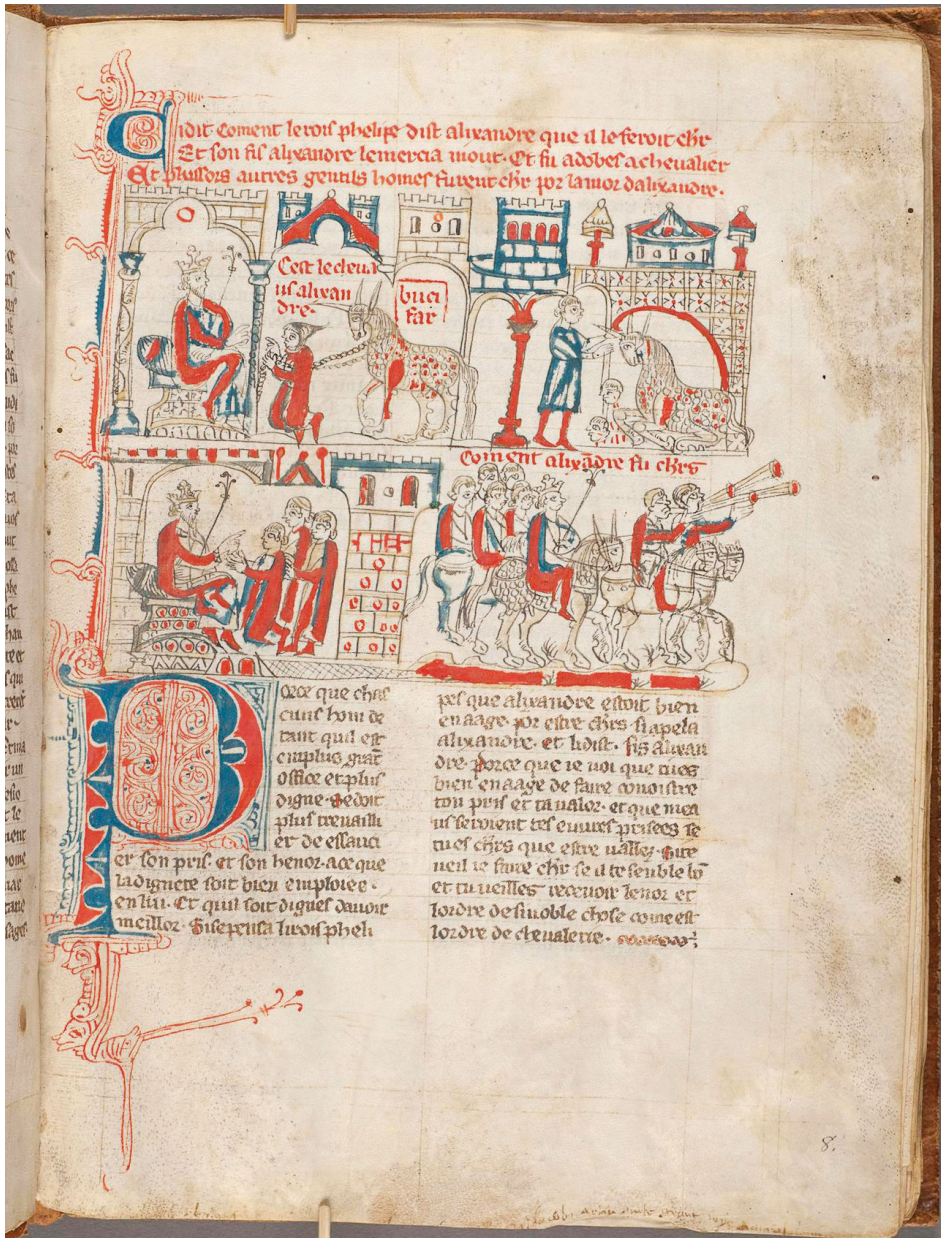 Ci dit coment le rois phelipe dist alixandre que il le feroit chr
Et son fis alixandre le mercia mout. Et fu adobes a chevalier
Et plussors autres gentils homes furent chr por lamor dalixandre.
Cest le cheva
us alixan
dre.
buci
far
Coment alixādre fu chrs
Porce que chas
cuns hom de
tant quil est
en plus grāt
office et plus
digne. Se doit
plus trevailli
er de essauci
er son pris. et son henor. a ce que
la dignete soit bien emploiee.
en lui. Et quil soit dignes davoir
meillor. Si se pensa li rois pheli
pes que alixandre estoit bien
en aage. por estre chrs si apela
alixandre. et li dist. fis alixan
dre. Porce que ie voi que tu es
bien en aage de faire conoistre
ton pris et ta valor. et que mea
us seroient tes euvres prisees se
tu es chrs que estre vallez. Si te
veil ie faire chr se il te senble bō
et tu veilles recevoir lenor et
lordre de si noble chose come est
lordre de chevalerie.
8.